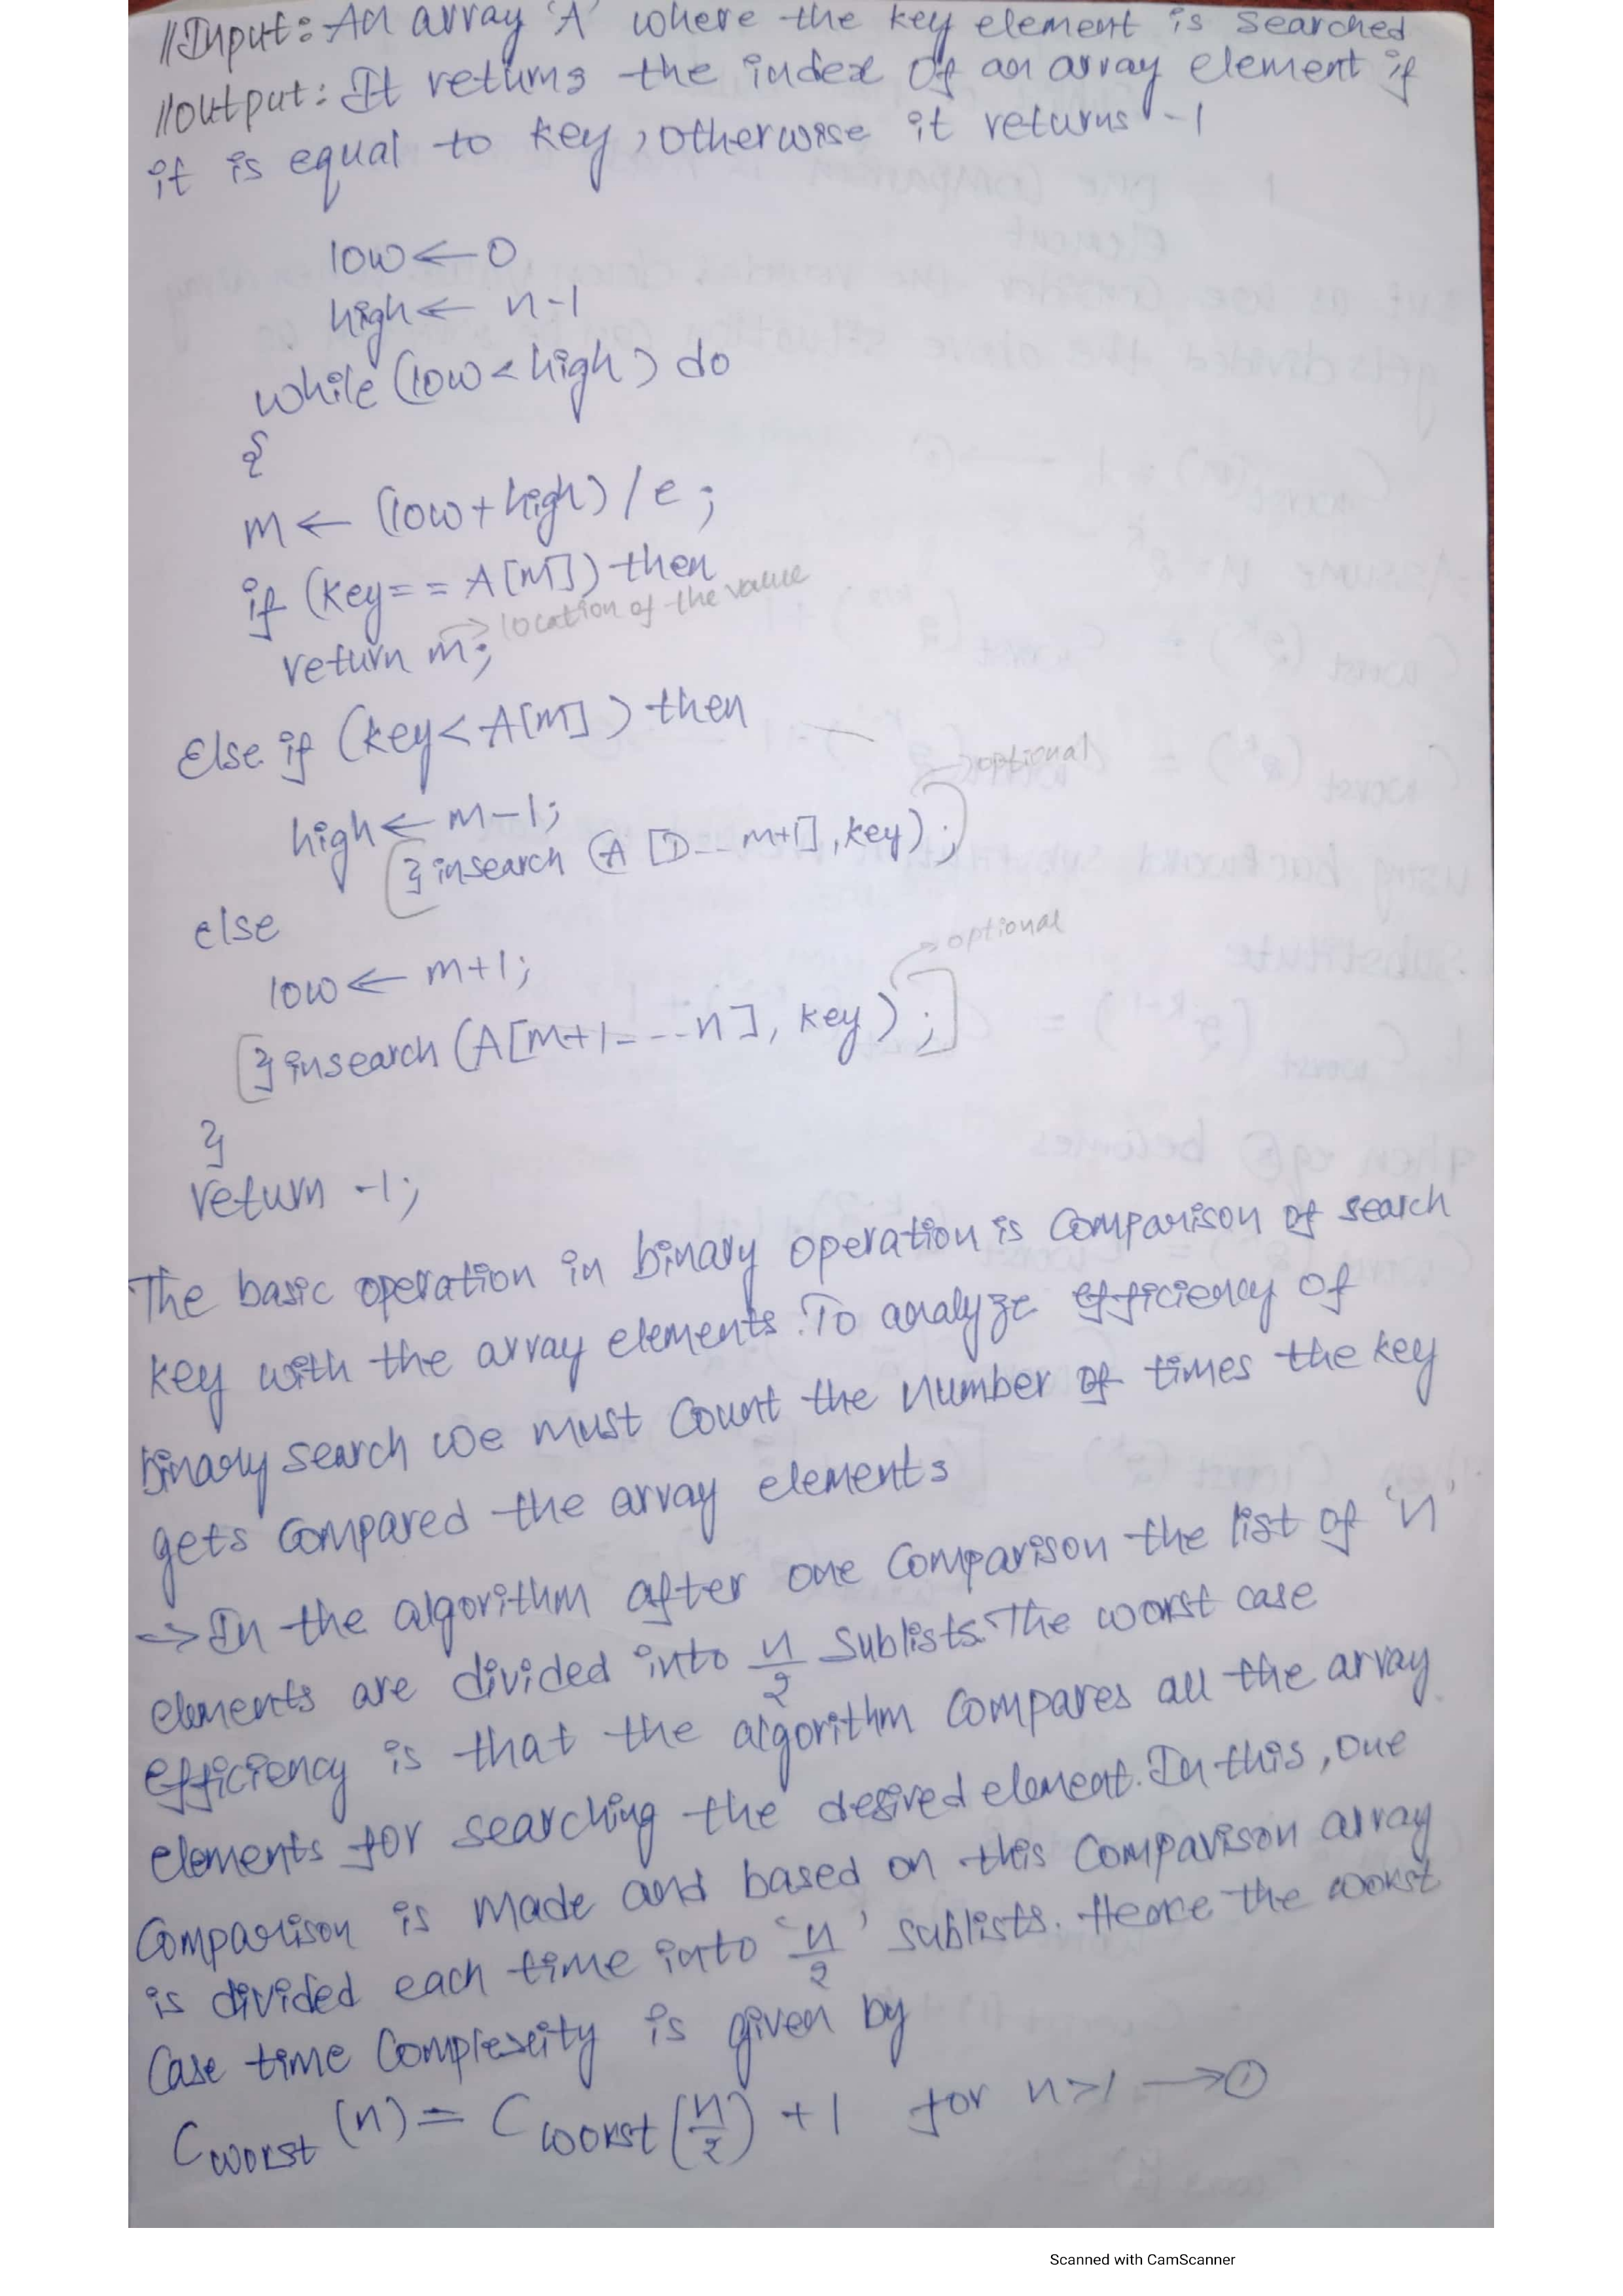 //Input: An array 'A' where the key element is searched
//output: It returns the index of an array element if
it is equal to key, otherwise it returns -1
low ← 0
high ← n-1
while (low < high) do
{
m ← (low + high) / e ;
if (key = = A[m]) then
return m; → location of the value
Else if (key < A[m]) then
high ← m-1;
[ }insearch (A [D--- m+1], key) ; ] → optional
else
low ← m+1;
[ }insearch (A[m+1----n], key) ; ] → optional
}
return -1;
The basic operation in binary operation is comparison of search
key with the array elements. To analyze efficiency of
binary search we must count the number of times the key
gets compared the array elements
→ In the algorithm after one comparison the list of 'n'
elements are divided into n/2 sublists. The worst case
efficiency is that the algorithm compares all the array
elements for searching the desired element. In this, one
comparison is made and based on this comparison array
is divided each time into 'n/2' sublists. Hence the worst
case time complexity is given by
C worst (n) = C worst (n/2) + 1 for n>1 → ①
Scanned with CamScanner